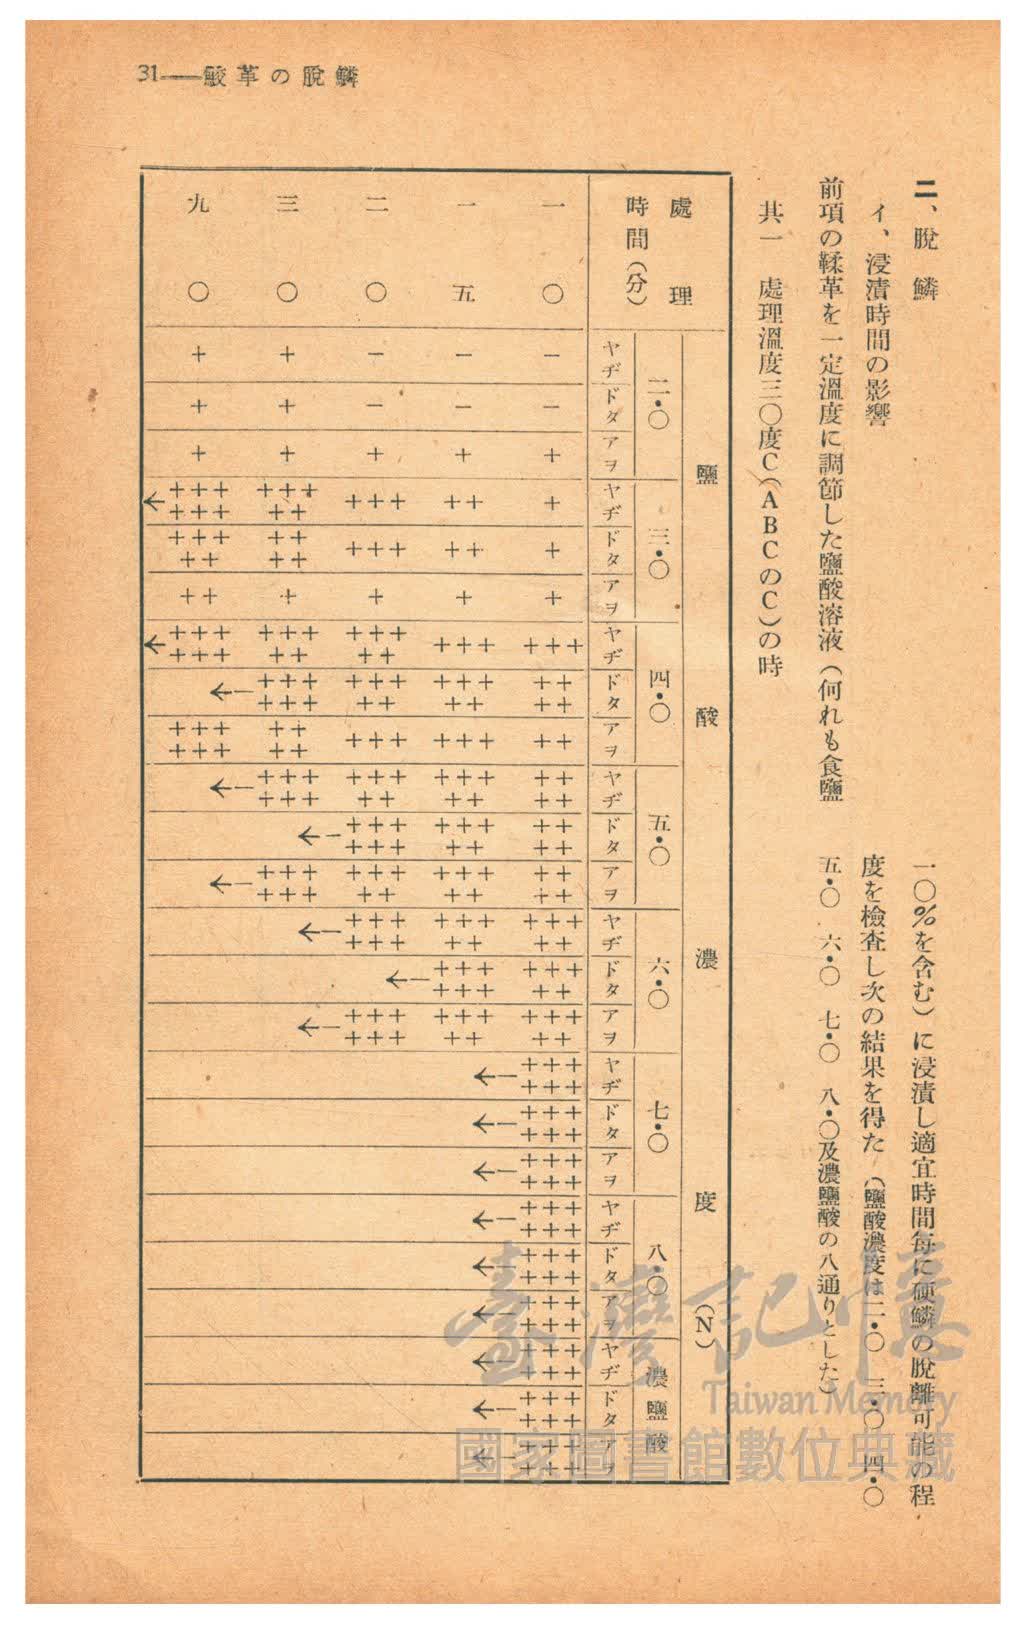 31——鮫革の脫鱗
二、脫　鱗
イ、浸漬時間の影響
前項の鞣革を一定溫度に調節した鹽酸溶液（何れも食鹽
一〇％を含む）に浸漬し適宜時間每に硬鱗の脫離可能の程
度を檢査し次の結果を得た（鹽酸濃度は二・〇　三・〇　四・〇
五・〇　六・〇　七・〇　八・〇及濃鹽酸の八通りとした）
其一　處理溫度三〇度C（ABCのC）の時
處理時間（分）　鹽酸濃度（N）
二・〇　三・〇　四・〇　五・〇　六・〇　七・〇　八・〇　濃鹽酸
ヤヂ ドタ アヲ ヤヂ ドタ アヲ ヤヂ ドタ アヲ ヤヂ ドタ アヲ ヤヂ ドタ アヲ ヤヂ ドタ アヲ ヤヂ ドタ アヲ ヤヂ ドタ アヲ
一〇 − − + + + + +++ ++++ ++ ++++ ++++ ++++ +++++ +++++ +++++ ++++++ ++++++ ++++++ ++++++ ++++++ ++++++ ++++++ ++++++ ++++++
一五 − − + ++ ++ + +++ +++++ +++ +++++ +++++ +++++ +++++ ++++++ +++++ ← ← ← ← ← ← ← ← ←
二〇 − − + +++ +++ + +++++ +++++ +++ +++++ ++++++ +++++ ++++++ ← ++++++
三〇 + + + +++++ +++++ + +++++ ++++++ ++++ ++++++ ← ++++++ ← ←
九〇 + + + ++++++← +++++ ++ ++++++← ← ++++++ ← ←
臺灣記憶
Taiwan Memory
國家圖書館數位典藏